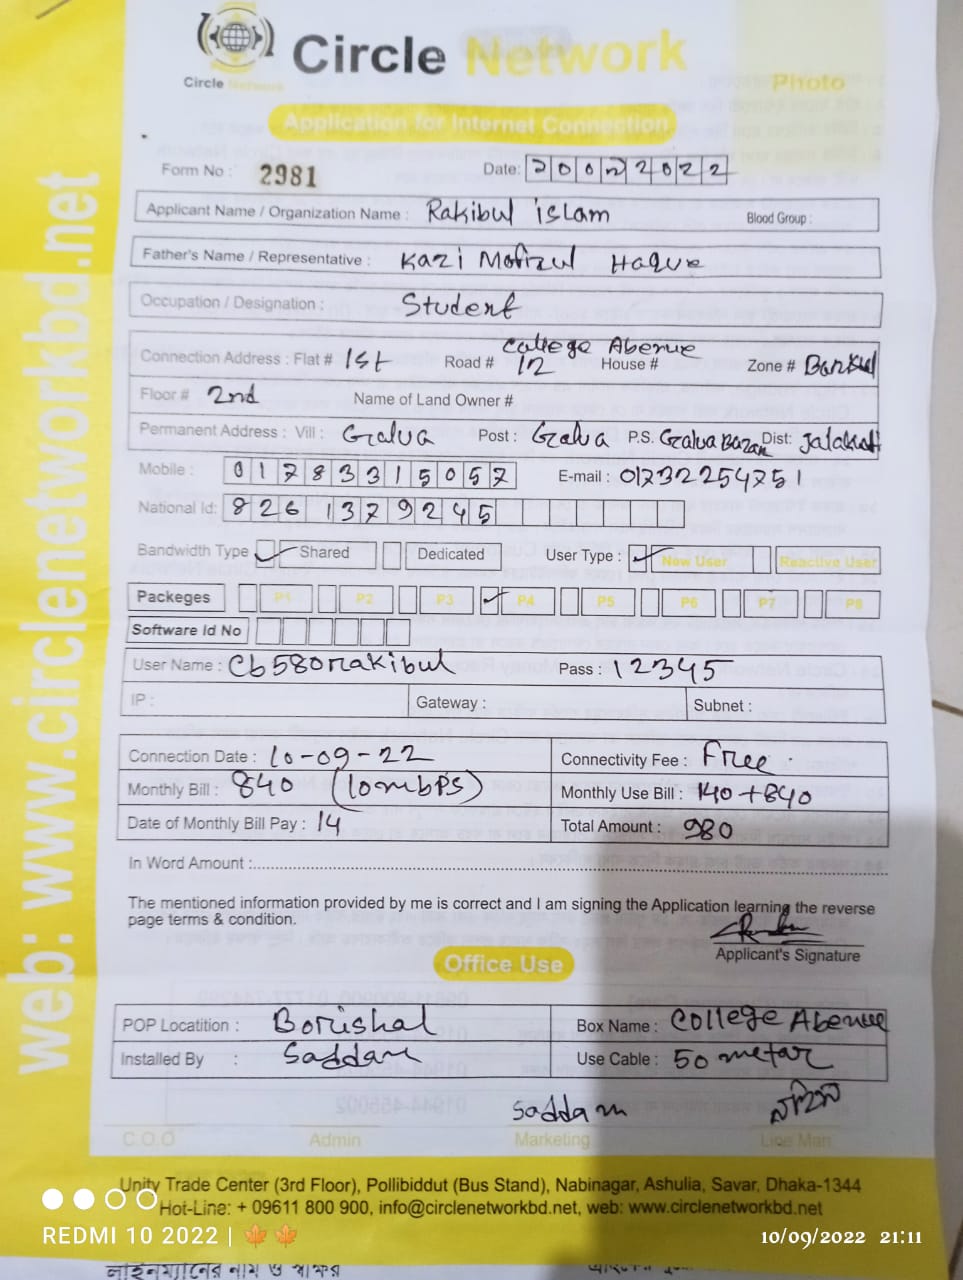 Circle Network
Circle Network
Photo
Application for Internet Connection
Form No : 2981 Date: 2022
Applicant Name / Organization Name : Rakibul islam Blood Group :
Father's Name / Representative : Kazi Mofizul Haque
Occupation / Designation : Student
College Abenue
Connection Address : Flat # 1st Road # 12 House # Zone #
Floor # 2nd Name of Land Owner #
Permanent Address : Vill : Galua Post : Galua P.S. Galua Bazar Dist:
Mobile : 01783315057 E-mail : 01732254751
National Id: 8261379245
Bandwidth Type Shared Dedicated User Type : New User Reactive User
Packeges P1 P2 P3 P4 P5 P6 P7 P8
Software Id No
User Name : Cb580rakibul Pass : 12345
IP : Gateway : Subnet :
Connection Date : 10-09-22 Connectivity Fee : Free
Monthly Bill : 840 (10mbps) Monthly Use Bill : 140+840
Date of Monthly Bill Pay : 14 Total Amount : 980
In Word Amount :
The mentioned information provided by me is correct and I am signing the Application learning the reverse
page terms & condition.
Applicant's Signature
Office Use
POP Locatition : Borishal Box Name : College Abenue
Installed By : Saddam Use Cable : 50 metar
Saddam
C.O.O Admin Marketing Line Man
Unity Trade Center (3rd Floor), Pollibiddut (Bus Stand), Nabinagar, Ashulia, Savar, Dhaka-1344
Hot-Line: + 09611 800 900, info@circlenetworkbd.net, web: www.circlenetworkbd.net
web: www.circlenetworkbd.net
REDMI 10 2022 |
10/09/2022 21:11
লাইনম্যানের নাম ও স্বাক্ষর